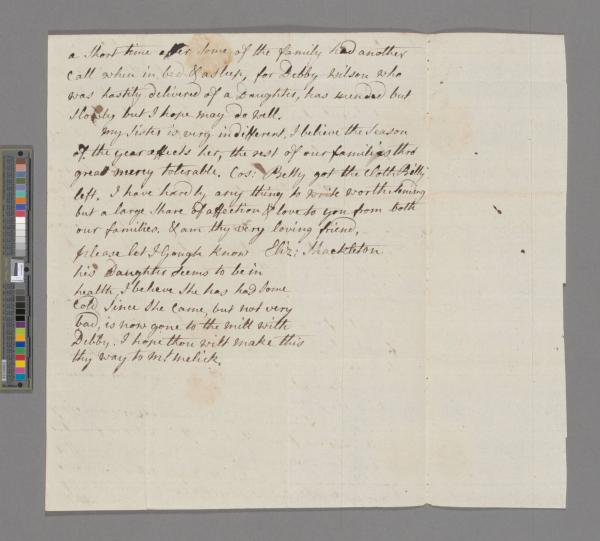 a short time after some of the family had another
call when in bed & asleep, for Debby Wilson who
was hastily delivered of a Daughter, has mended but
slowly but I hope may do well.
My Sister is very indifferent, I believe the season
of the year affects her, the rest of our families thro
great mercy tolerable. Cos: Betty got the cloth Betty
left. I have hardly any thing to write worth
but a large share of affection & love to you from both
our families, & am thy very loving friend,
Eliz: Shackleton
please let J Gough know
his Daughter seems to be in
health, I believe she has had some
Cold since she came, but not very
bad, is now gone to the mill with
Debby. I hope thou wilt make this
thy way to Mt melick.